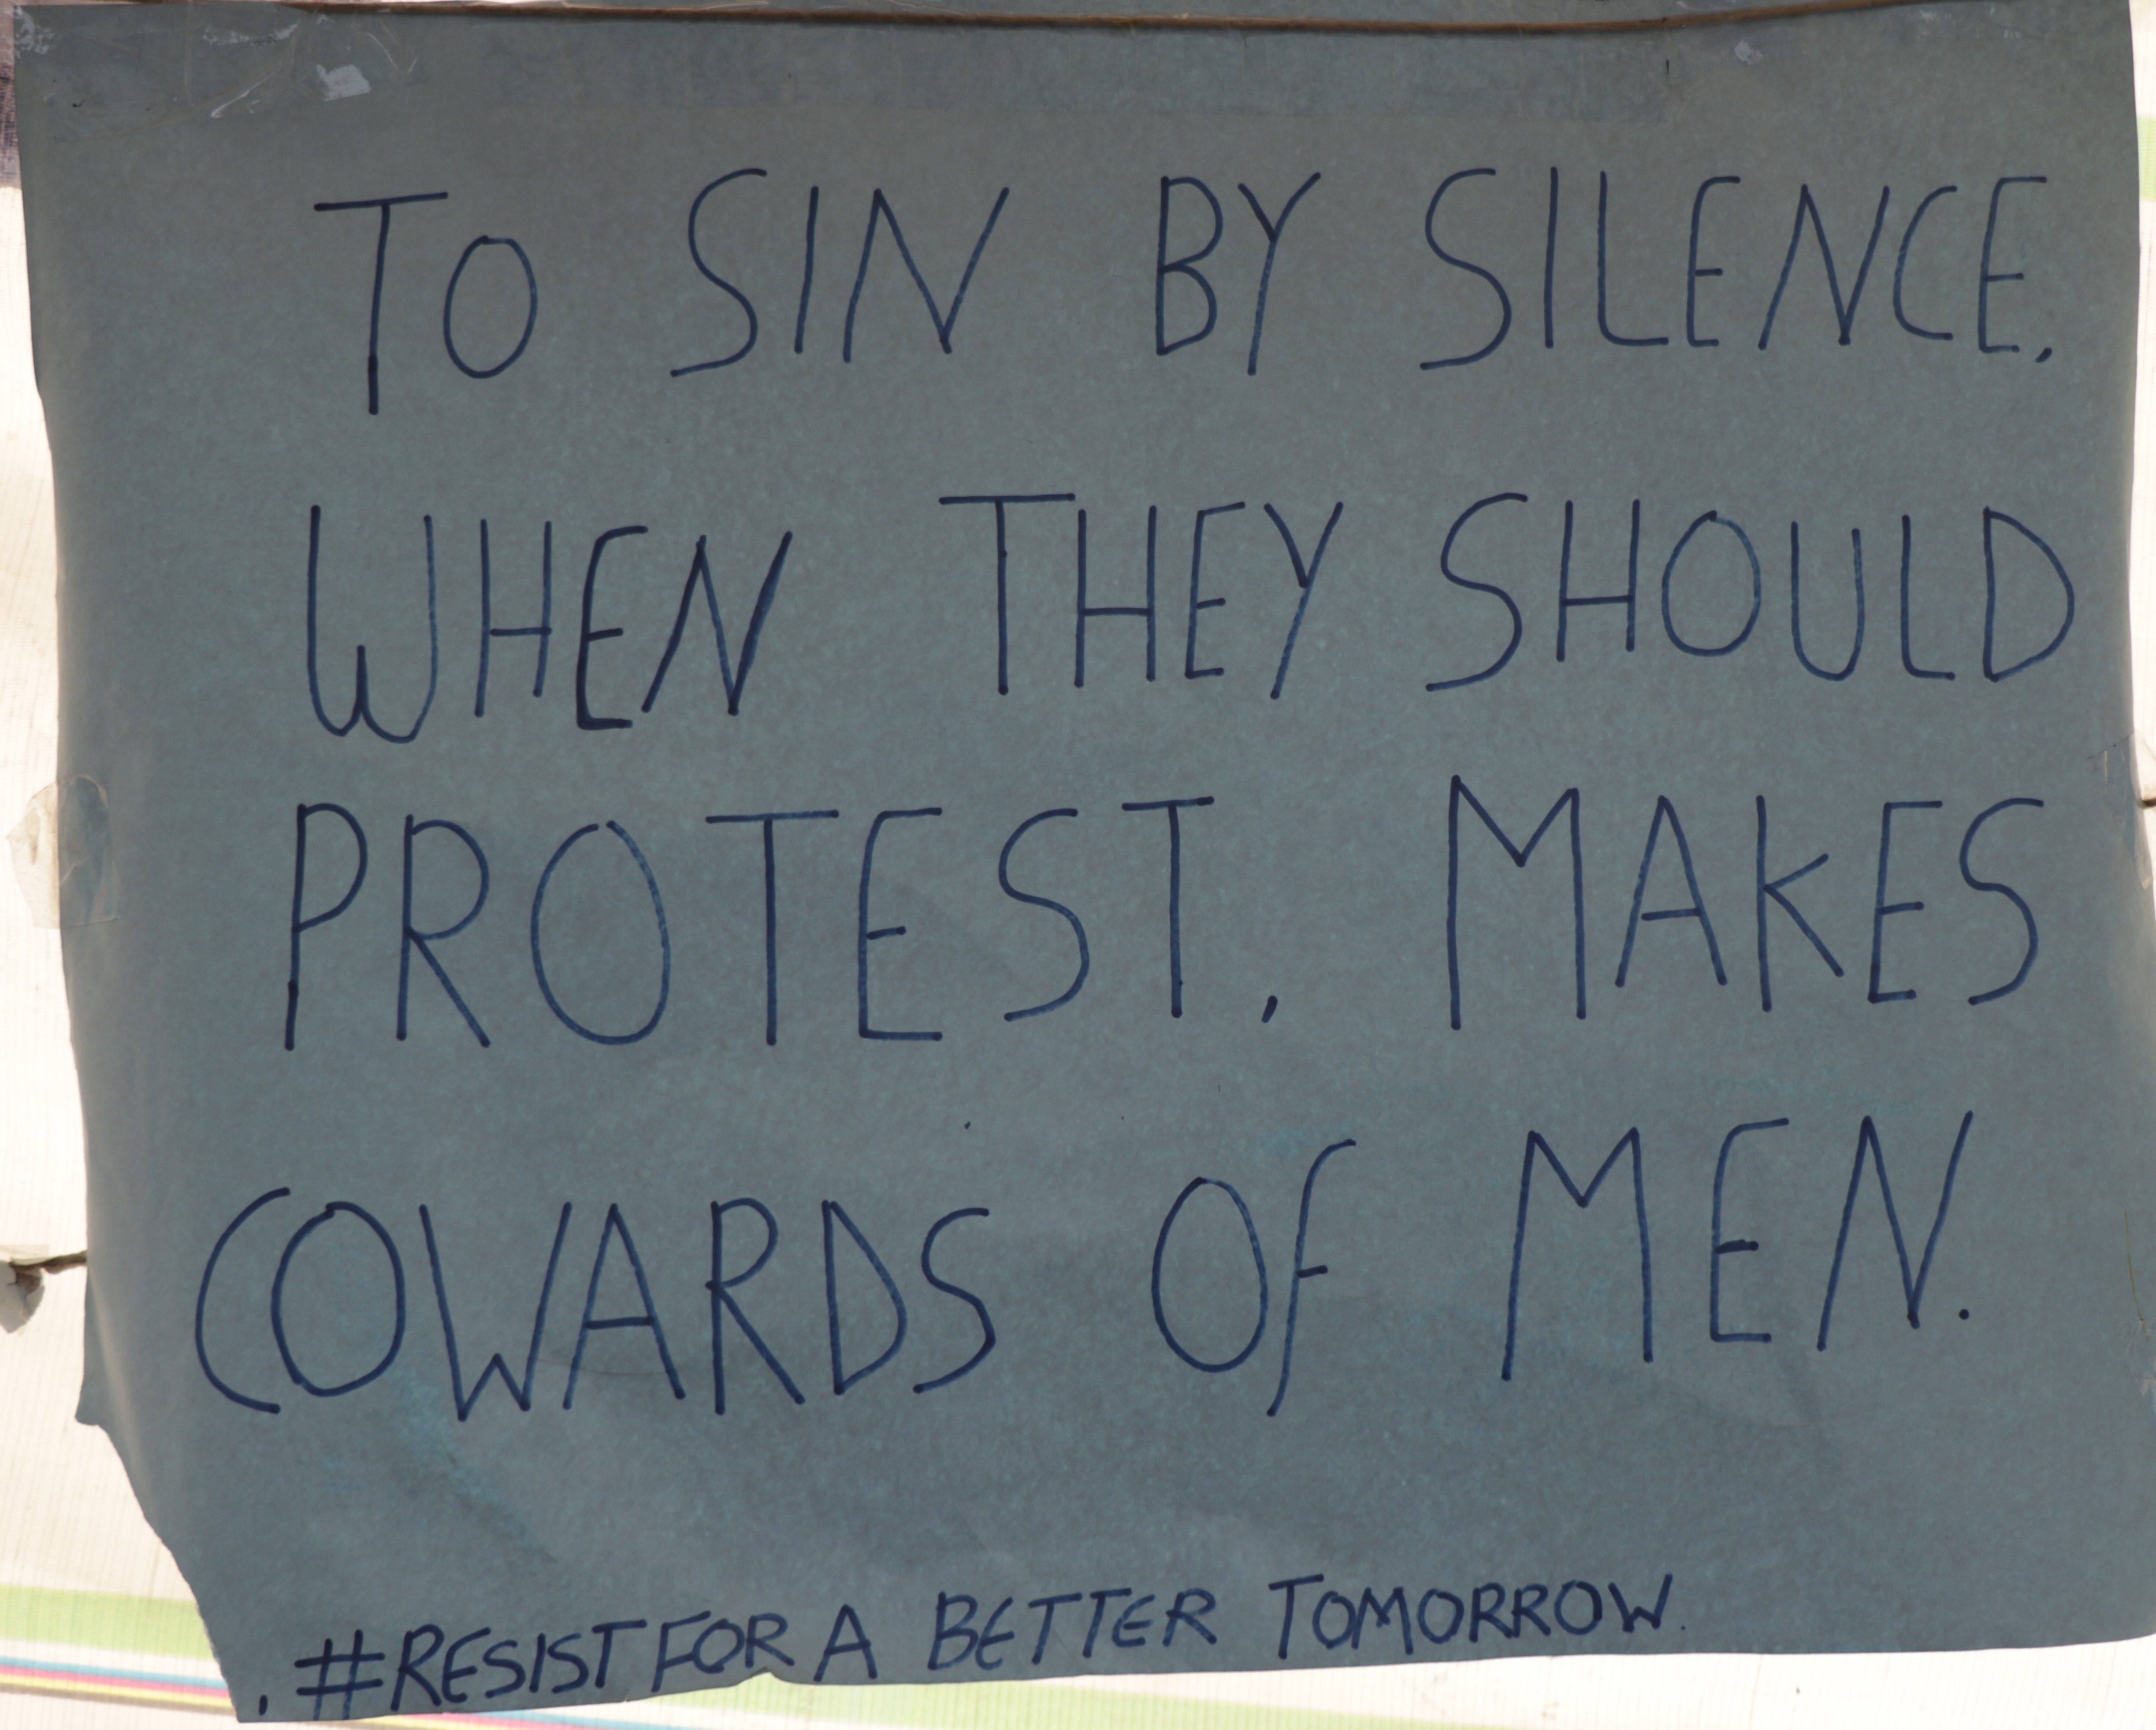 TO SIN BY SILENCE,
WHEN THEY SHOULD
PROTEST, MAKES
COWARDS OF MEN.
#RESIST FOR A BETTER TOMORROW.